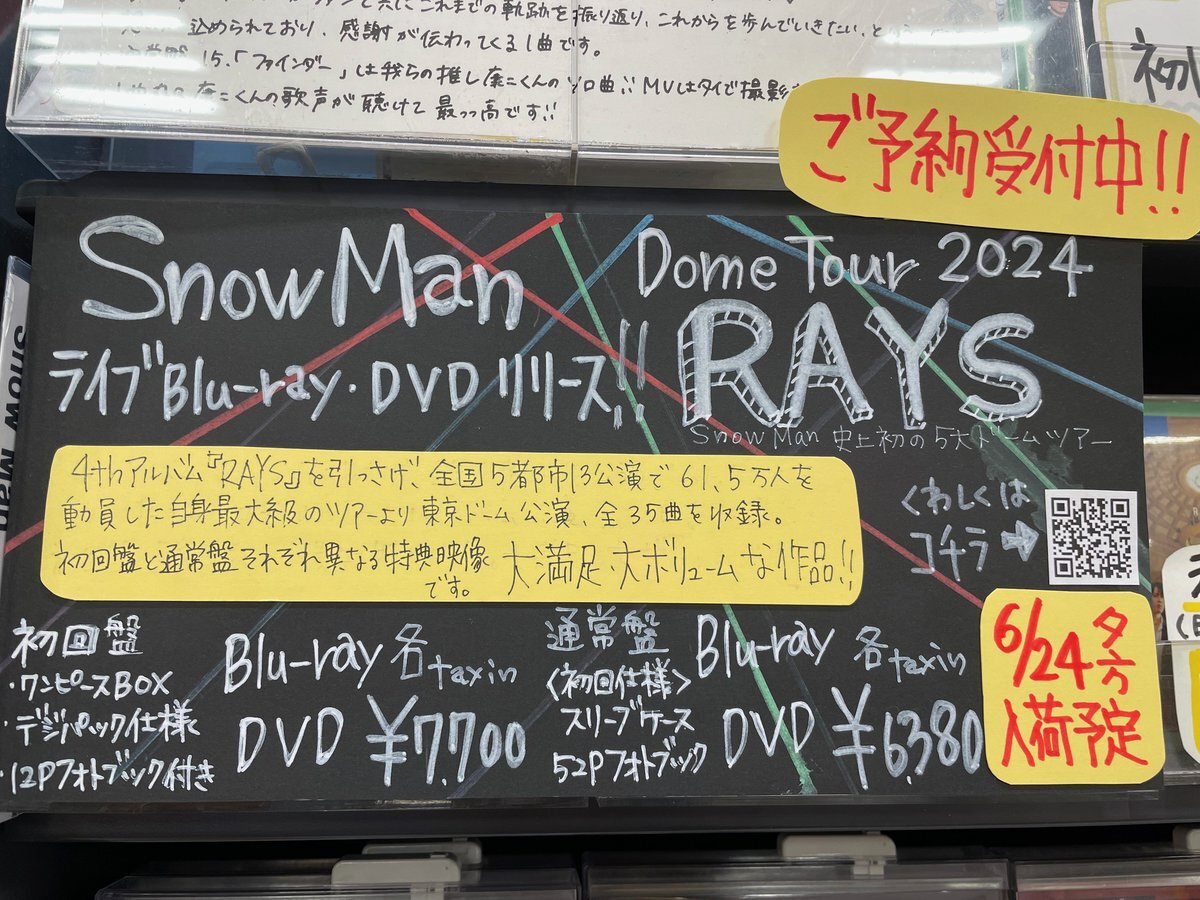 これまでの軌跡を振り返り、これからを歩んでいきたい、と
込められており、感謝が伝わってくる1曲です。
15.「ファインダー」は我らの推し康二くんのソロ曲!! MVはタイで撮影
康二くんの歌声が聴けて最っっ高です!!
初
ご予約受付中!!
Snow Man
Dome Tour 2024
RAYS
ライブBlu-ray・DVDリリース!!
Snow Man 史上初の5大ドームツアー
4thアルバム『RAYS』を引っさげ、全国5都市13公演で61.5万人を
動員した自身最大級のツアーより東京ドーム公演、全35曲を収録。
初回盤と通常盤それぞれ異なる特典映像
です。
大満足・大ボリュームな作品!!
くわしくは
コチラ→
初回盤
・ワンピースBOX
・デジパック仕様
・12Pフォトブック付き
Blu-ray 各tax in
DVD ¥7,700
通常盤
<初回仕様>
スリーブケース
52Pフォトブック
Blu-ray 各tax in
DVD ¥6,380
6/24夕方
入荷予定
Snow Man